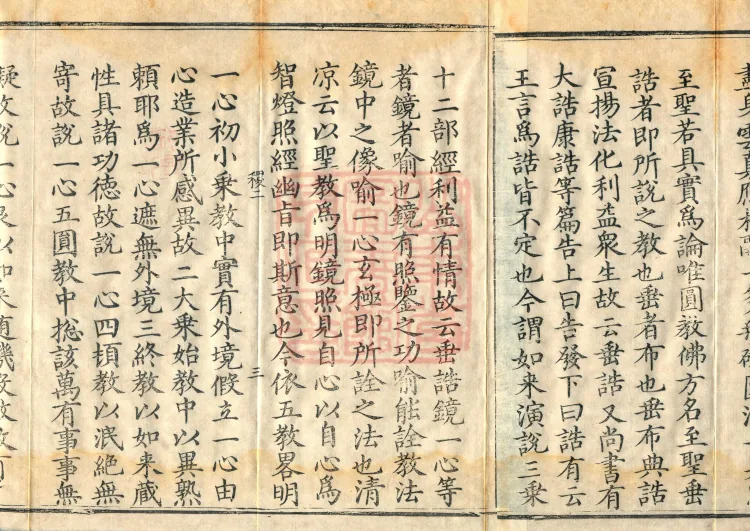 至聖若具實爲論唯圓教佛方名至聖垂
誥者即所說之教也垂者布也垂布典誥
宣揚法化利益衆生故云垂誥又尚書有
大誥康誥等篇告上曰告發下曰誥有云
王言爲誥皆不定也今謂如来演說三乗
十二部經利益有情故云垂誥鏡一心等
者鏡者喻也鏡有照鑒之功喻能詮教法
鏡中之像喻一心玄極即所詮之法也清
凉云以聖教爲明鏡照見自心以自心爲
智燈照經幽旨即斯意也今依五教畧明
稷二
三
一心初小乗教中實有外境假立一心由
心造業所感異故二大乗始教中以異熟
頼耶爲一心遮無外境三終教以如来蔵
性具諸功德故說一心四頓教以泯絶無
寄故說一心五圓教中捴該萬有事事無